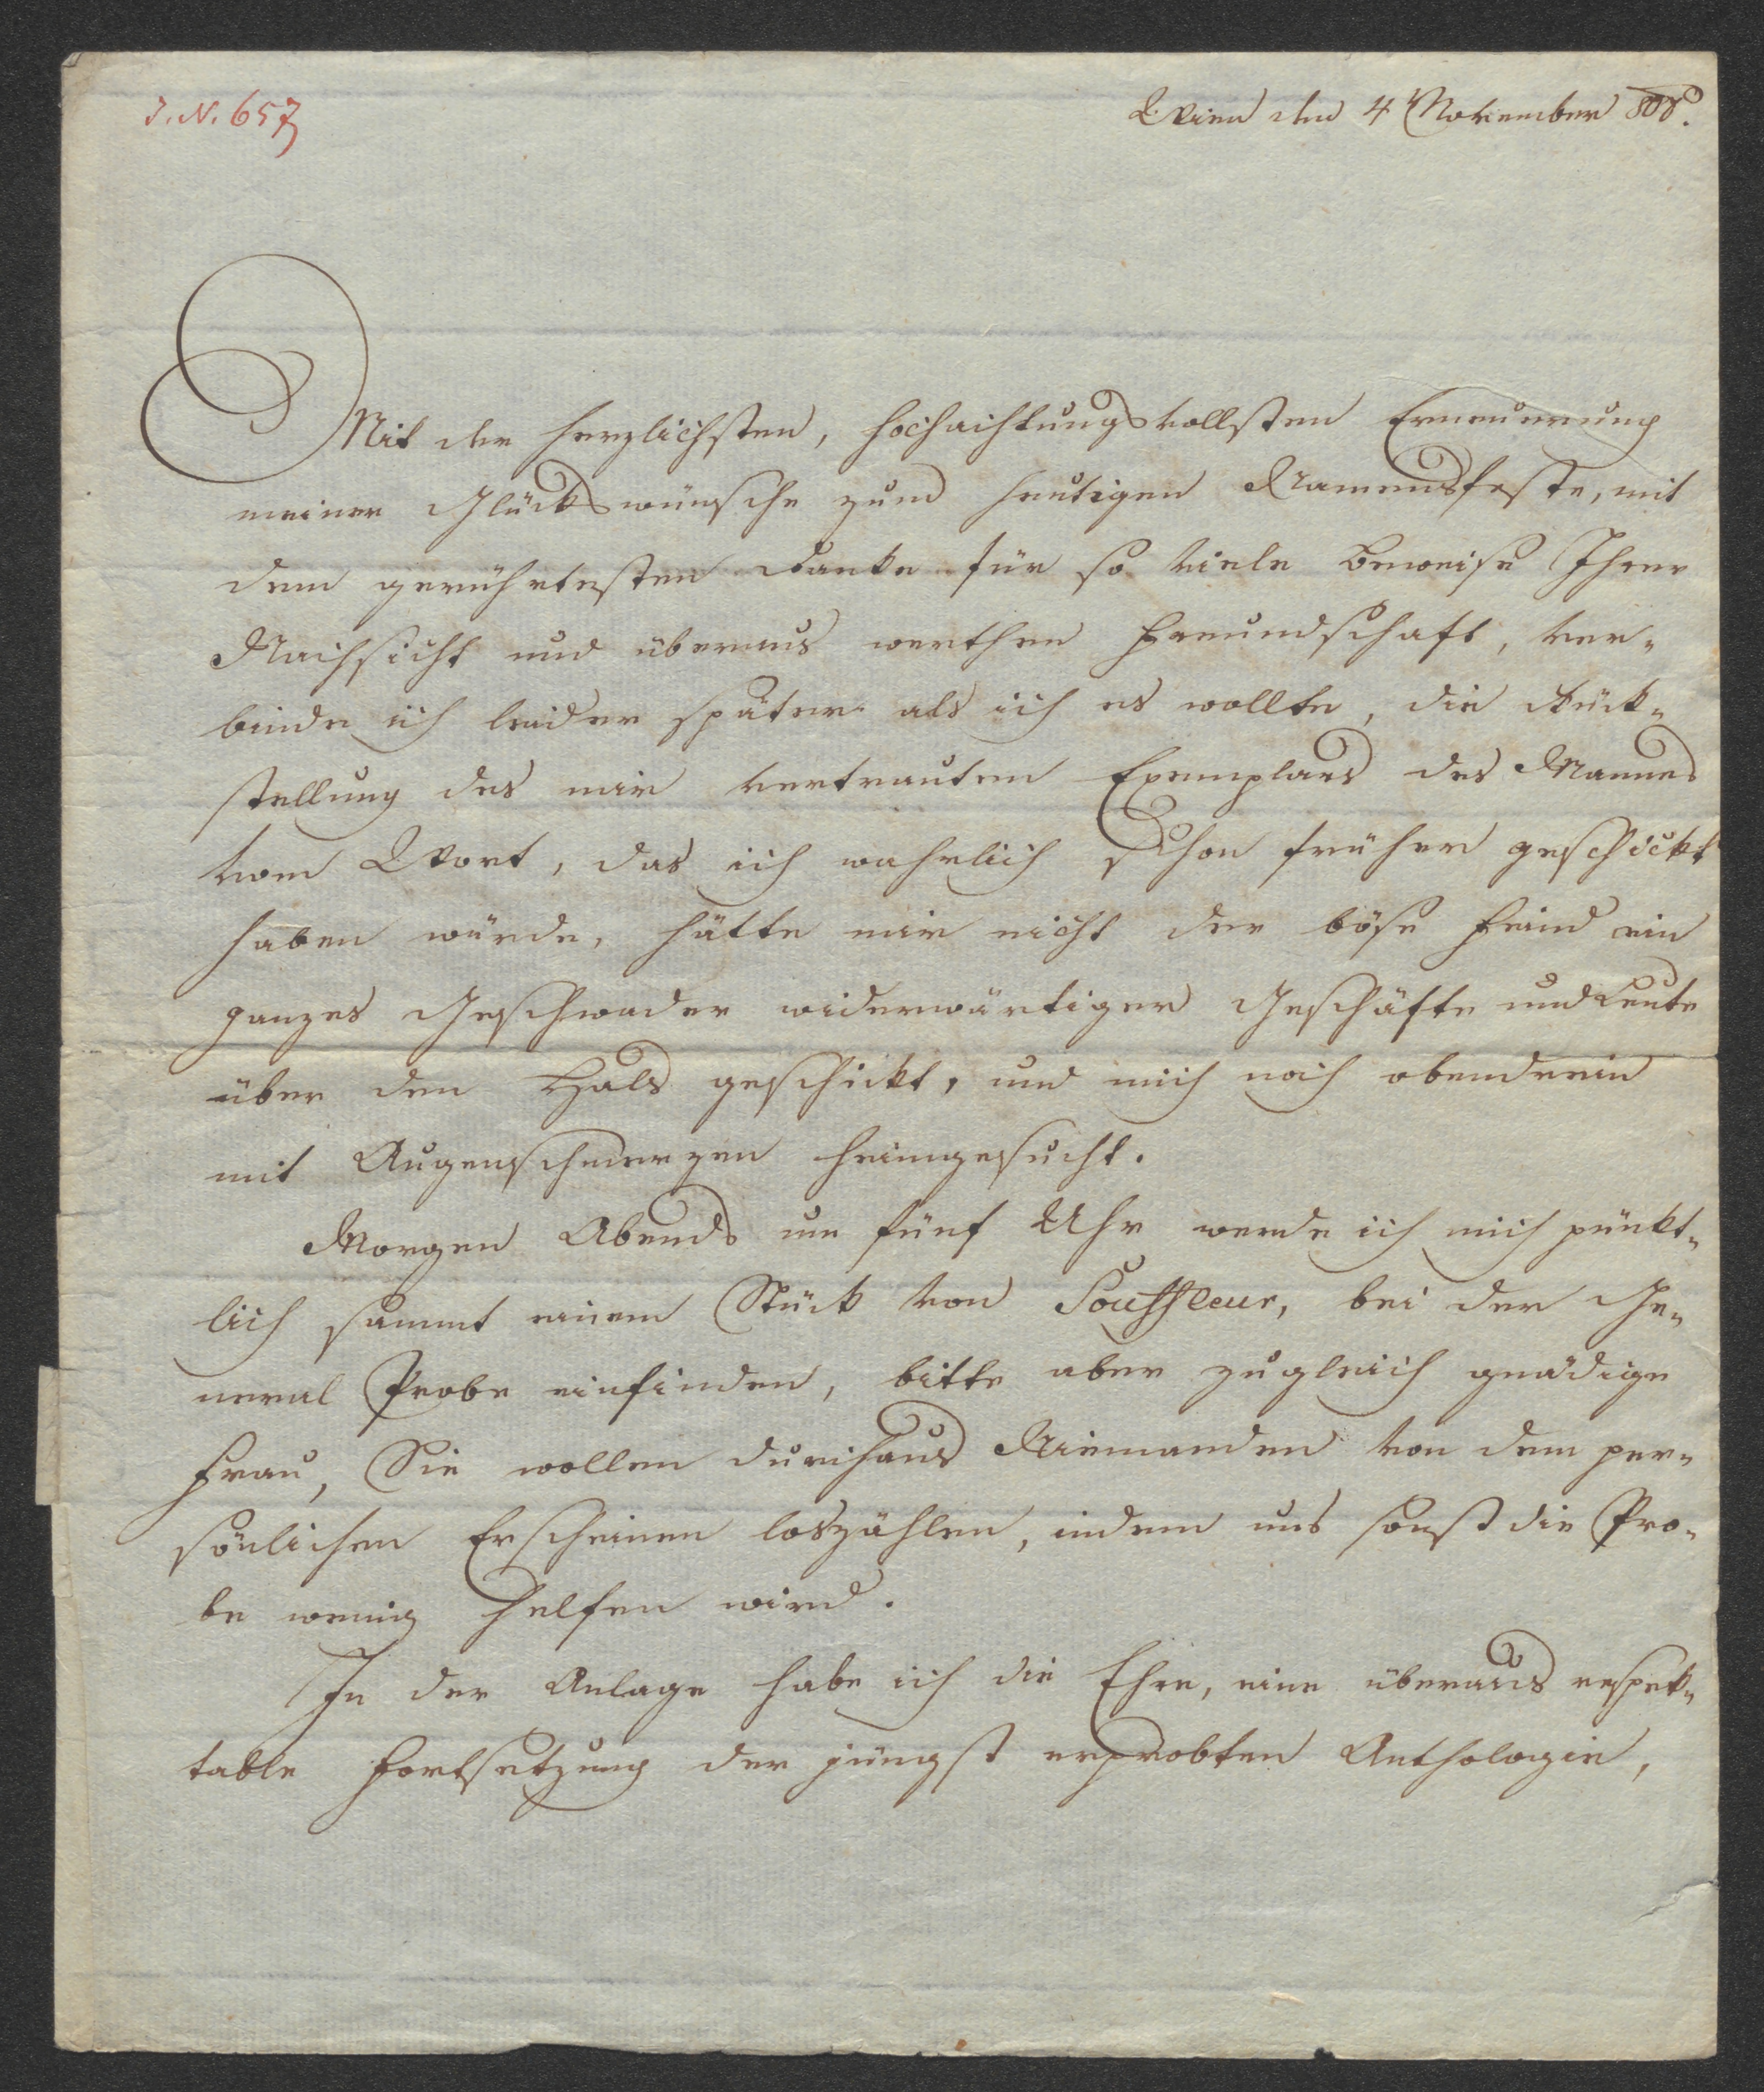 I. N. 657
Wien den 4 November 808.
Mit der herzlichsten, hochachtungsvollsten Erneuerung
meiner Glückswünsche zum heutigen Namensfeste, mit
dem gerührtesten Danke für so viele Beweise Ihrer
Nachsicht und überaus werthen Freundschaft, ver-
binde ich leider später als ich es wollte, die Rück-
stellung des mir vertrauten Exemplars des Mannes
vom Wort, das ich wahrlich schon früher geschickt
haben würde, hätte mir nicht der böse Feind ein
ganzes Geschwader widerwärtiger Geschäfte und Leute
über den Hals geschickt, und mich noch obendrein
mit Augenschmerzen heimgesucht.
Morgen Abends um fünf Uhr werde ich mich pünkt-
lich sammt einem Stück von Souffleur, bei der Ge-
neral Probe einfinden, bitte aber zugleich gnädige
Frau, Sie wollen durchaus Niemanden von dem per-
sönlichen Erscheinen loszählen, indem uns sonst die Pro-
be wenig helfen wird.
In der Anlage habe ich die Ehre, eine überaus respek-
table Fortsetzung der jüngst erprobten Anthologie,